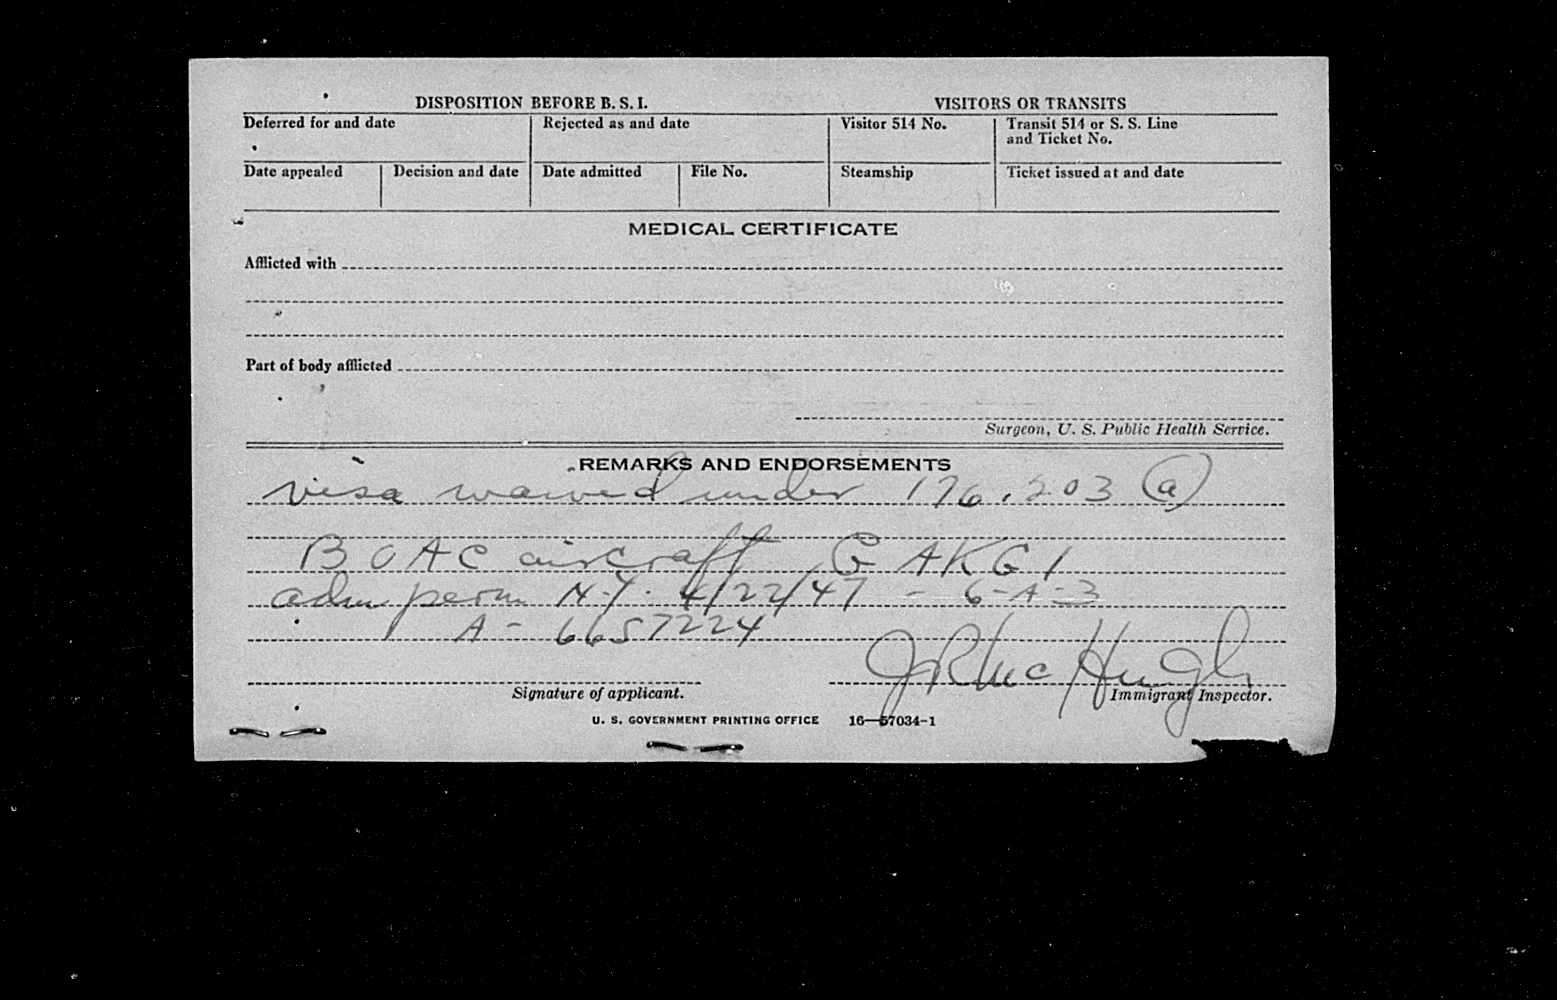 DISPOSITION BEFORE B. S. I.
VISITORS OR TRANSITS
Deferred for and date
Rejected as and date
Visitor 514 No.
Transit 514 or S. S. Line
and Ticket No.
Date appealed
Decision and date
Date admitted
File No.
Steamship
Ticket issued at and date
MEDICAL CERTIFICATE
Afflicted with
Part of body afflicted
Surgeon, U. S. Public Health Service.
REMARKS AND ENDORSEMENTS
visa waived under 176.203 (a)
BOAC aircraft G AKG1
adm perm N.Y. 4/22/47 - 6-A-3
A- 6657224
J R McHugh
Signature of applicant.
Immigrant Inspector.
U. S. GOVERNMENT PRINTING OFFICE 16—57034-1